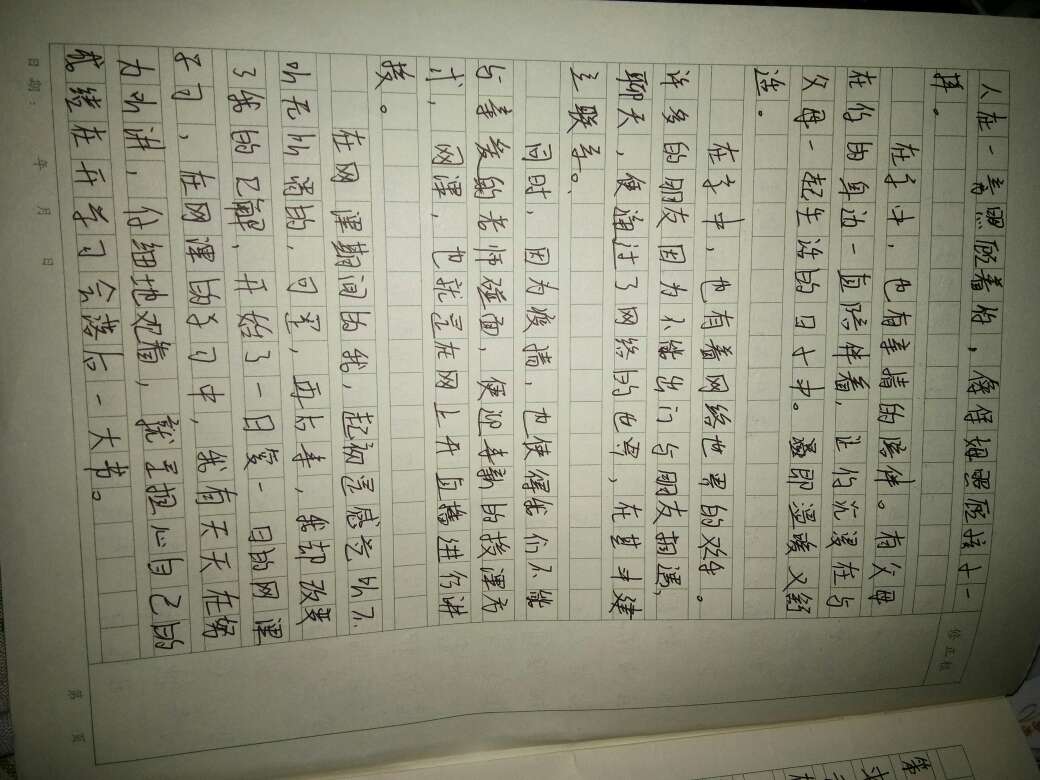 人在一旁照顾着的，像得姐照顾孩子一
样。
在家中，也有亲情的陪伴。有父母
在你的身边一直陪伴着，让你沉浸在与
父母一起生活的日子中。温暖又舒
适。
在家中，也有着网络世界的欢乐。
许多的朋友因为不能出门与朋友相遇，
聊天，便通过了网络的世界，在其中建
立联系。
同时，因为疫情，也使得我们不能
与喜爱的老师碰面，便迎来新的授课方
式，网课，也就是在网上开直播进行讲
授。
在网课期间的我，起初是感觉听不
听无所谓的，可是，再后来，我却改变
了我的见解，开始了一日复一日的网课
学习，在网课的学习中，我有天天在努
力听讲，仔细地观看，就是担心自己的
成绩在开学习会落后一大节。
日期： 年 月 日
第 页
修正栏
第